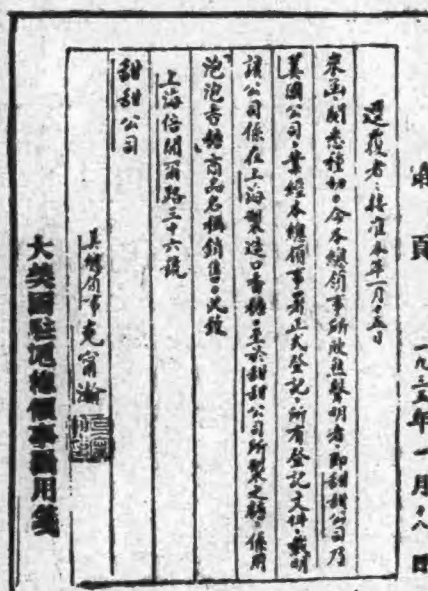 頁
一九三五年一月十八日
逕覆者：接准本年一月十五日
來函閱悉種切。今本總領事所欲聲明者、即甜甜公司乃
美國公司、業經本總領事署正式登記、所有登記文件、載明
該公司係在上海製造口香糖、至於甜甜公司所製之糖、係用
泡泡香糖商品名稱銷售。此致
上海倍開爾路三十六號
甜甜公司
總領事克甯瀚
大美國駐滬總領事署用箋